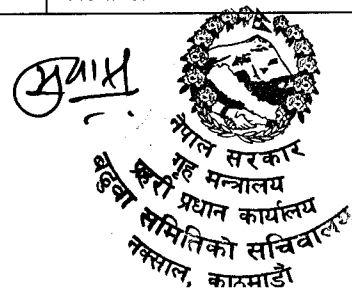 सुवास
नेपाल सरकार
गृह मन्त्रालय
प्रहरी प्रधान कार्यालय
बढुवा समितिको सचिवालय
नक्साल, काठमाडौं